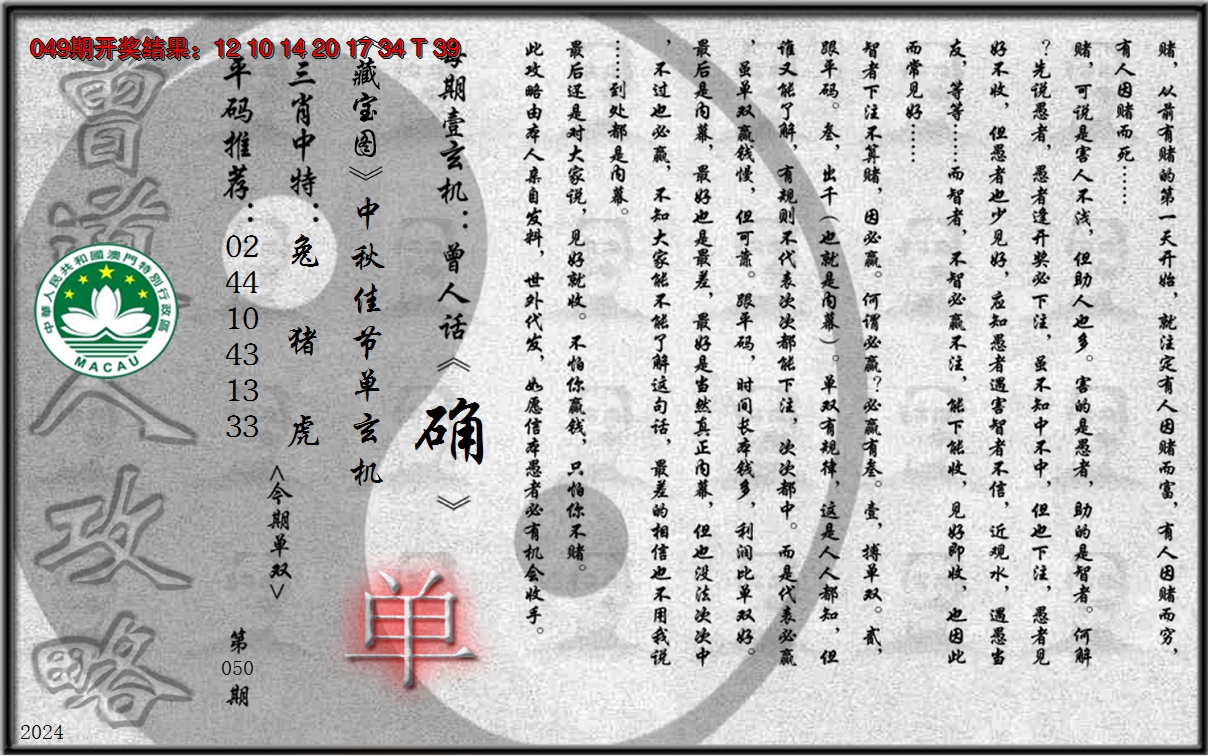 049期开奖结果：12 10 14 20 17 34 T 39
赌，从前有赌的第一天开始，就注定有人因赌而富，有人因赌而穷，
有人因赌而死……
赌，可说是害人不浅，但助人也多。害的是愚者，助的是智者。何解
？先说愚者，愚者逢开奖必下注，虽不知中不中，但也下注，愚者见
好不收，但愚者也少见好，应知愚者遇害智者不信，近观水，遇愚当
友，等等……而智者，不智必赢不注，能下能收，见好即收，也因此
而常见好……
智者下注不算赌，因必赢。何谓必赢？必赢有叁。壹，搏单双。贰，
跟平码。叁，出千（也就是内幕）。单双有规律，这是人人都知，但
谁又能了解，有规则不代表次次都能下注，次次都中。而是代表必赢
，虽单双赢钱慢，但可靠。跟平码，时间长本钱多，利润比单双好。
最后是内幕，最好也是最差，最好是当然真正内幕，但也没法次次中
，不过也必赢，不知大家能不能了解这句话，最差的相信也不用我说
……到处都是内幕。
最后还是对大家说，见好就收。不怕你赢钱，只怕你不赌。
此攻略由本人亲自发料，世外代发，如愿信本愚者必有机会收手。
每期壹玄机：曾人话《确》
《藏宝图》中秋佳节单玄机
单
三肖中特：兔 猪 虎
<今期单双>
平码推荐：02 44 10 43 13 33
第
050
期
曾道人攻略
中華人民共和國澳門特別行政區
MACAU
2024